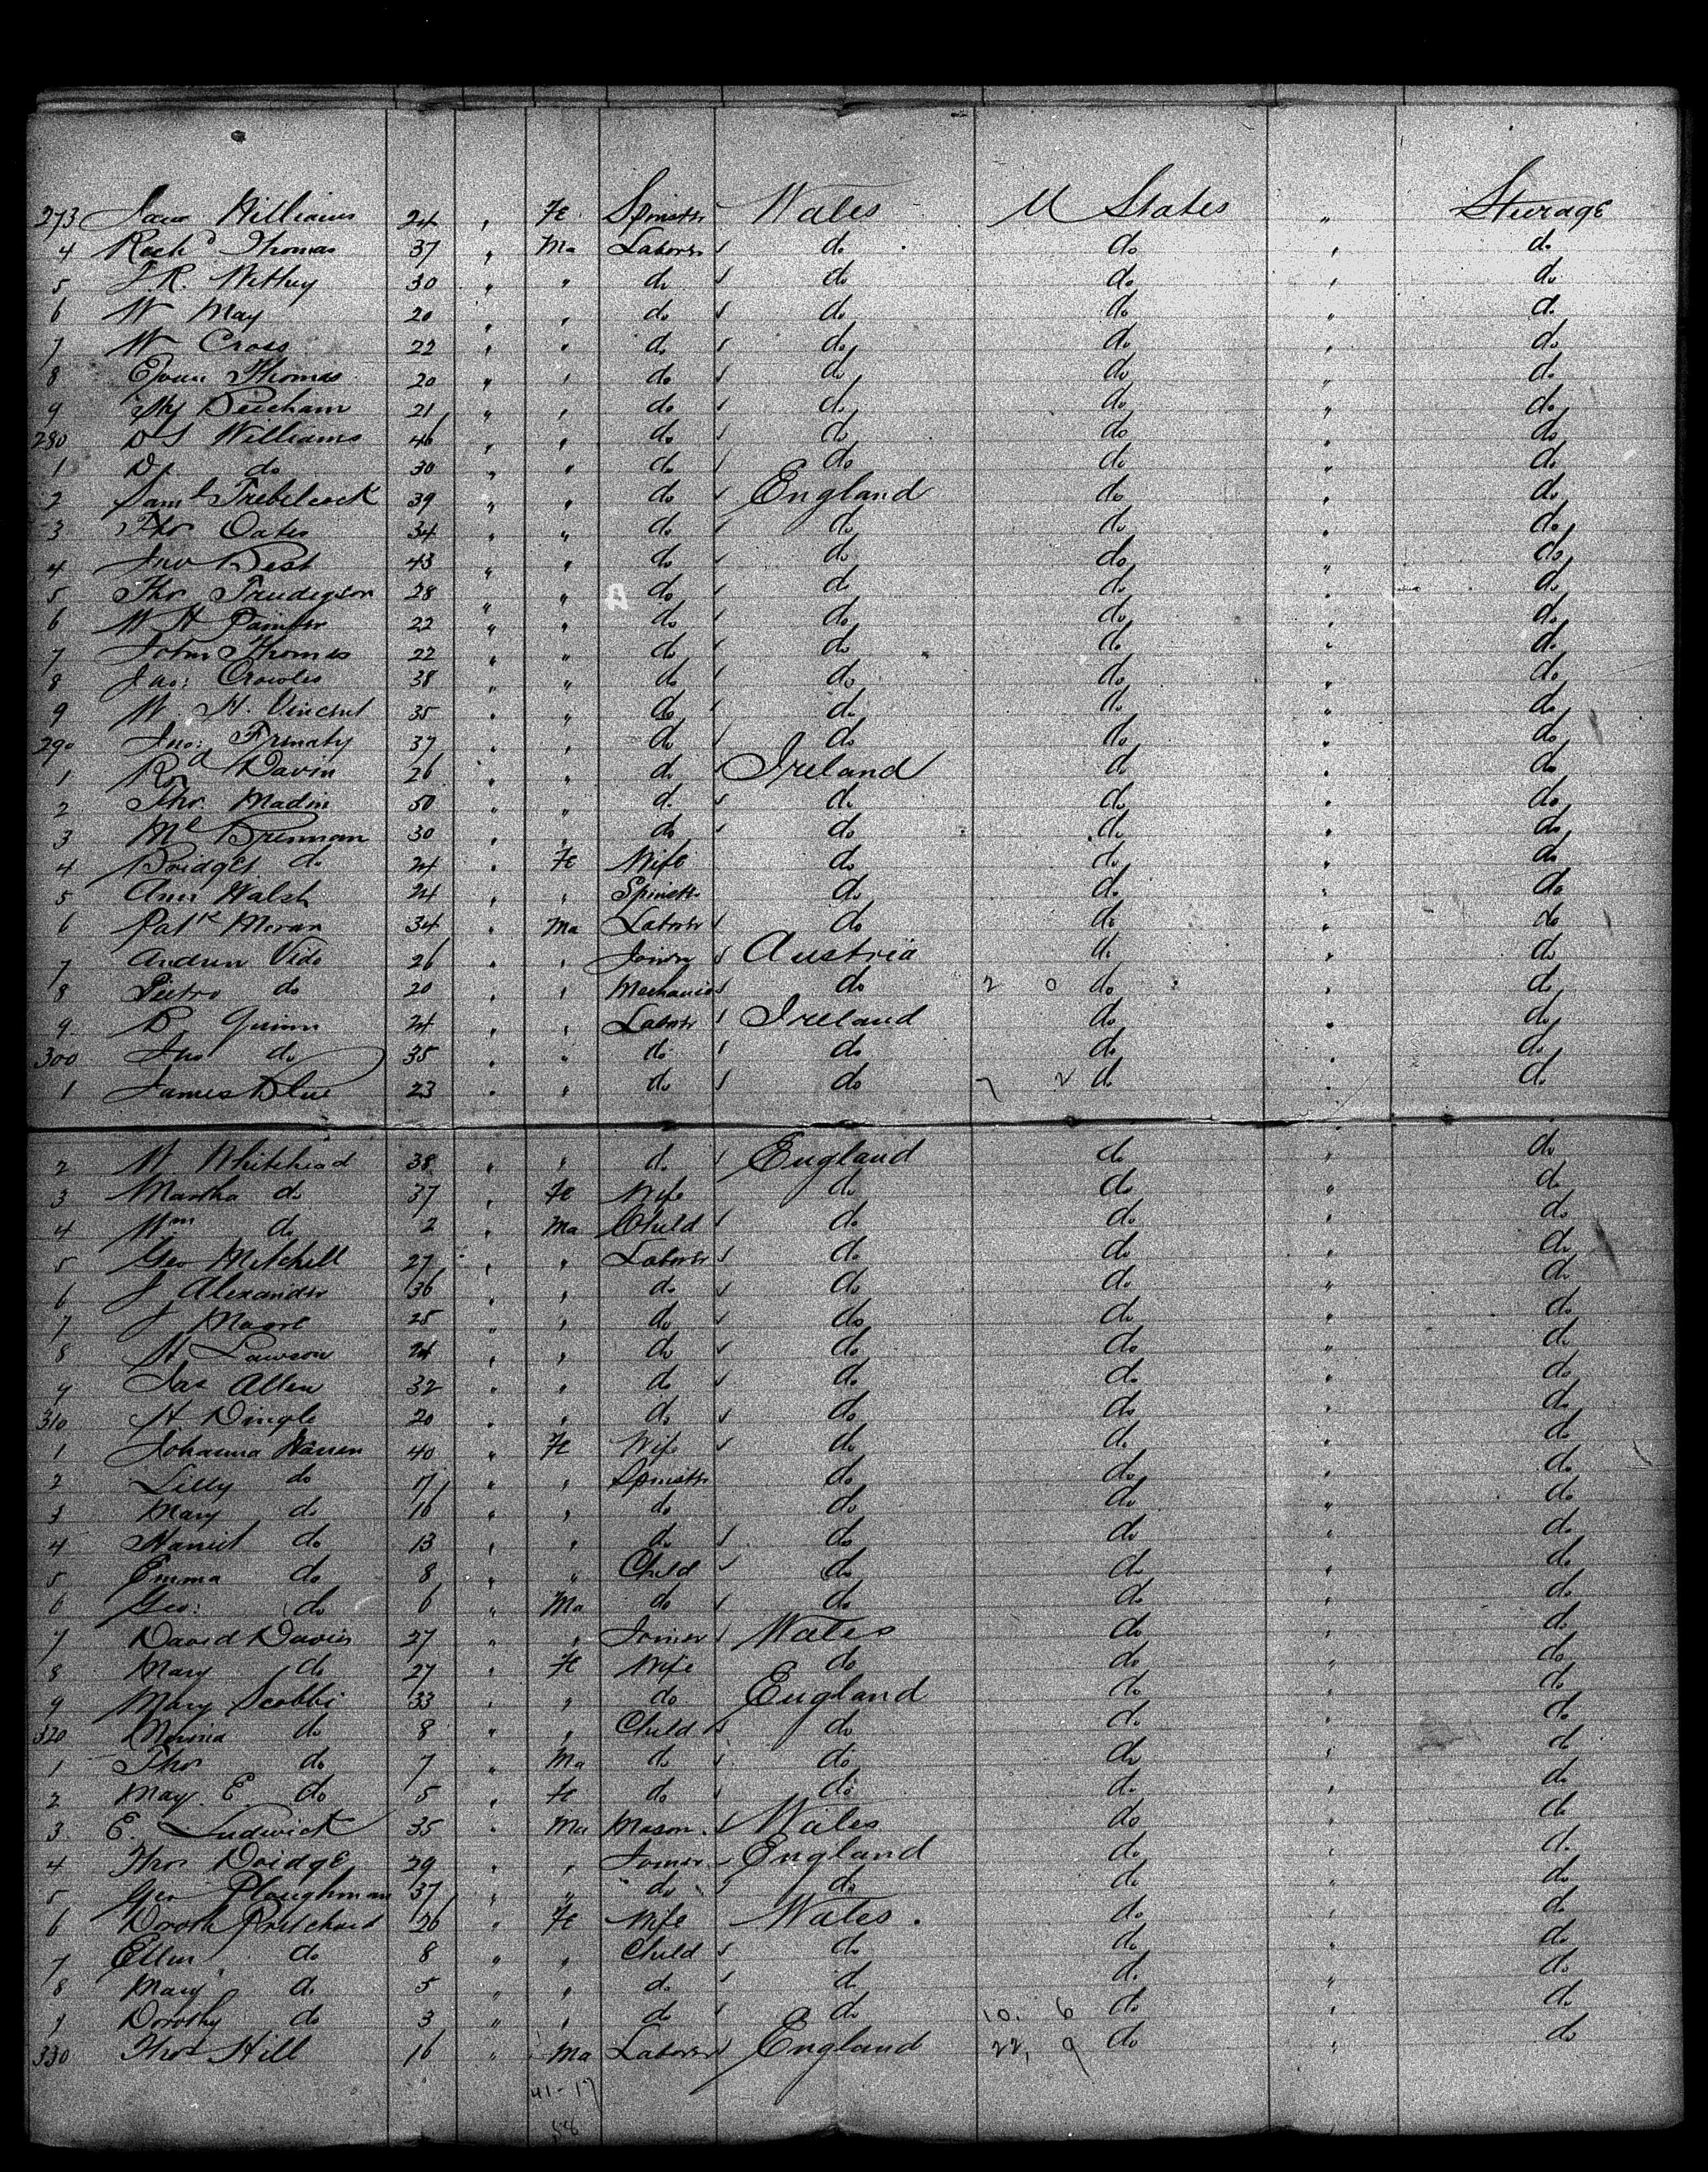 273 Jane Williams 24 " Fe Spinster Wales U States " Sturage
4 Rich<sup>d</sup> Thomas 37 " Ma Laborer do do " do
5 J. R. 30 " " do do do " do
6 W May 20 " " do do do " do
7 W Cross 22 " " do do do " do
8 Evan Thomas 20 " " do do do " do
9 Beecham 21 " " do do do " do
280 D S Williams 46 " " do do do " do
1 do 30 " " do do do " do
2 Saml Trebilcock 39 " " do England do " do
3 Thos Oates 34 " " do do do " do
4 Jno Best 43 " " do do do " do
5 Thos 28 " " do do do " do
6 W H Painter 22 " " do do do " do
7 John Thomas 22 " " do do do " do
8 Jno: Crowles 38 " " do do do " do
9 W H. Vincent 35 " " do do do " do
290 Jno: 37 " " do do do " do
1 Rd Davin 26 " " do Ireland do " do
2 Thos. Madin 50 " " do do do " do
3 Ml Brennan 30 " " do do do " do
4 Bridget do 24 " Fe Wife do do " do
5 Ann Walsh 24 " " Spinstr do do " do
6 Patk Moran 34 " Ma Laborer do do " do
7 Andrew Vido 26 " " Joiner Austria do " do
8 Pietro do 20 " " Mechanic do 2 0 do " do
9 B. Quinn 24 " " Laborer Ireland do " do
300 Jno do 35 " " do do do " do
1 James Blue 23 " " do do 7 2 do " do
2 W. Whitehead 38 " " do England do " do
3 Martha do 37 " Fe Wife do do " do
4 Wm do 2 " Ma Child do do " do
5 Geo Mitchell 27 " " Laborer do do " do
6 J Alexander 36 " " do do do " do
7 J Moore 25 " " do do do " do
8 H Lawson 24 " " do do do " do
9 Jas Allen 32 " " do do do " do
310 H Dingle 20 " " do do do " do
1 Johanna Warren 40 " Fe Wife do do " do
2 Lilly do 17 " " Spinstr do do " do
3 Mary do 16 " " do do do " do
4 Harriet do 13 " " do do do " do
5 Emma do 8 " " Child do do " do
6 Geo: do 6 " Ma do do do " do
7 David Davies 27 " " Joiner Wales do " do
8 Mary do 27 " Fe Wife do do " do
9 Mary Scobbi 33 " " do England do " do
320 do 8 " " Child do do " do
1 Thos do 7 " Ma do do do " do
2 May. E. do 5 " Fe do do do " do
3 E. Ludwick 35 " Ma Mason Wales do " do
4 Thos Doidge 29 " " Joiner England do " do
5 Geo Ploughman 37 " " do do do " do
6 Doroth Pritchard 26 " Fe Wife Wales. do " do
7 Ellen do 8 " " Child do do " do
8 Mary do 5 " " do do do " do
9 Dorothy do 3 " " do do 10. 6 do " do
330 Thos Hill 16 " Ma Laborer England 22, 9 do " do
41-17
58